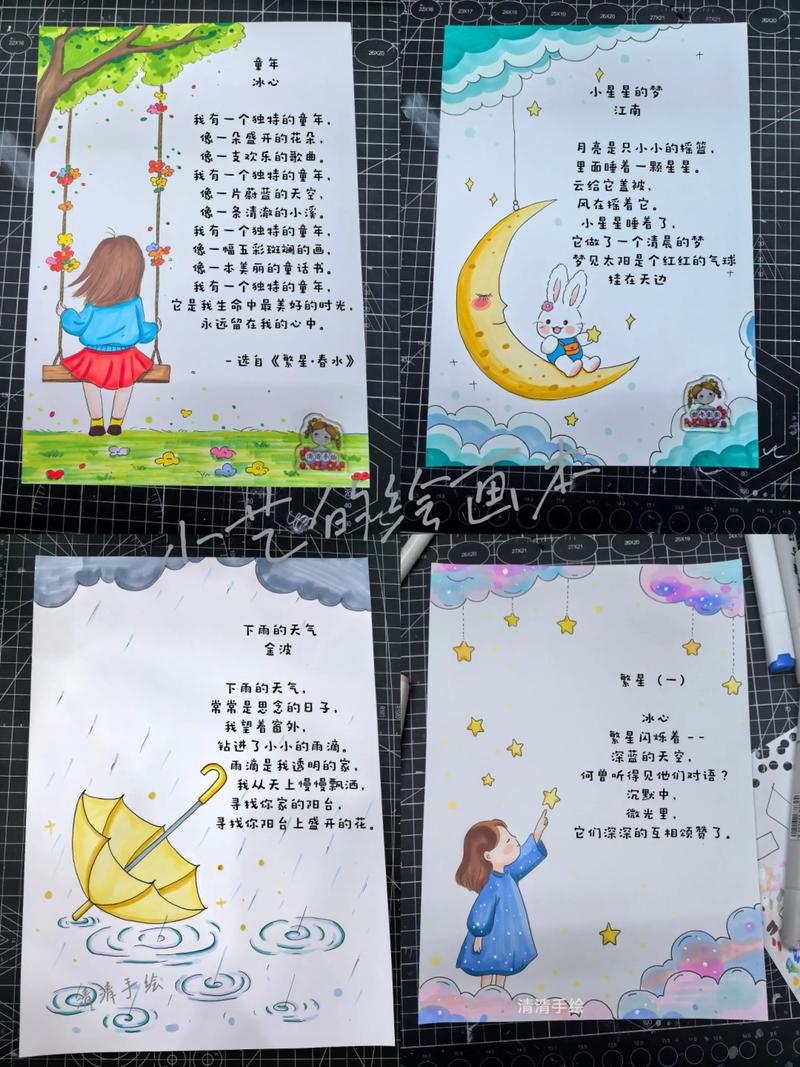 童年
冰心
我有一个独特的童年，
像一朵盛开的花朵，
像一支欢乐的歌曲。
我有一个独特的童年，
像一片蔚蓝的天空，
像一条清澈的小溪。
我有一个独特的童年，
像一幅五彩斑斓的画，
像一本美丽的童话书。
我有一个独特的童年，
它是我生命中最美好的时光，
永远留在我的心中。
-选自《繁星·春水》
小星星的梦
江南
月亮是只小小的摇篮，
里面睡着一颗星星。
云给它盖被，
风在摇着它。
小星星睡着了，
它做了一个清晨的梦
梦见太阳是个红红的气球
挂在天边
小艺的绘画本
下雨的天气
金波
下雨的天气，
常常是思念的日子，
我望着窗外，
钻进了小小的雨滴。
雨滴是我透明的家，
我从天上慢慢飘洒，
寻找你家的阳台，
寻找你阳台上盛开的花。
清清手绘
繁星（一）
冰心
繁星闪烁着--
深蓝的天空，
何曾听得见他们对语？
沉默中，
微光里，
它们深深的互相颂赞了。
清清手绘